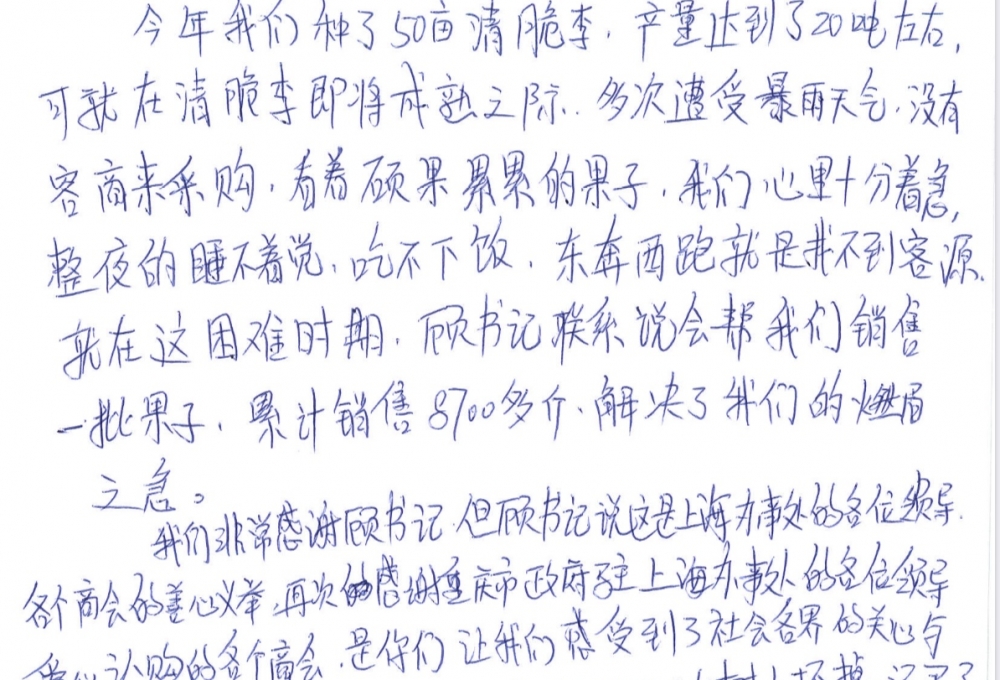 今年我们种了50亩清脆李，产量达到了20吨左右，
可就在清脆李即将成熟之际．多次遭受暴雨天气，没有
客商来采购，看着硕果累累的果子，我们心里十分着急，
整夜的睡不着觉，吃不下饭，东奔西跑就是找不到客源．
就在这困难时期，顾书记联系说会帮我们销售
一批果子，累计销售8700多斤，解决了我们的燃眉
之急。
我们非常感谢顾书记，但顾书记说这是上海办事处的各位领导．
各个商会的善心义举，再次的感谢重庆市政府驻上海办事处的各位领导
爱心认购的各个商会，是你们让我们感受到了社会各界的关心与